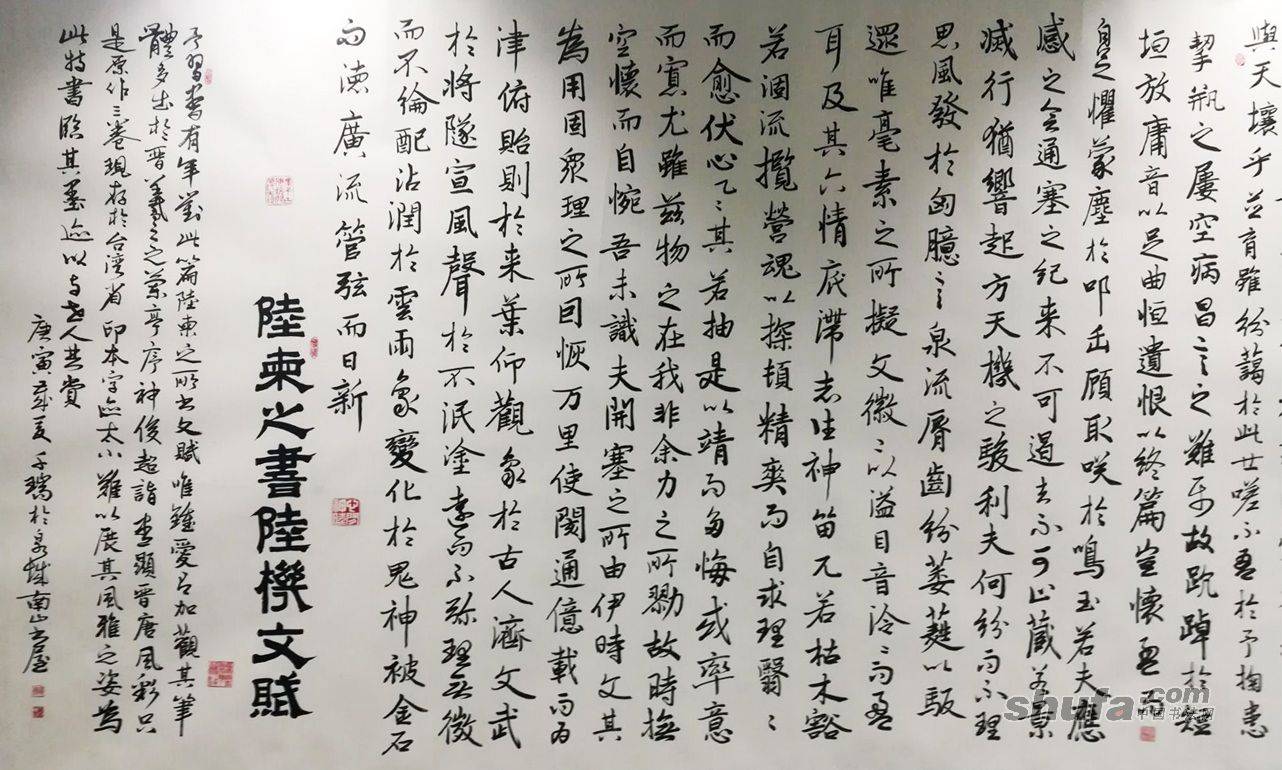 與天壤乎並育雖紛藹於此世嗟不盈於予掬患
挈瓶之屢空病昌言之難故踸踔於短
垣放庸音以足曲恒遺恨以終篇豈懷盈而
自足懼蒙塵於叩缶顧取咲於鳴玉若夫應
感之會通塞之紀来不可遏去不可止藏若景
滅行猶響起方天機之駿利夫何紛而不理
思風發於匈臆言泉流脣齒紛葳蕤以馺
遝唯毫素之所擬文徽々以溢目音泠々而盈
耳及其六情底滯志往神留兀若枯木豁
若涸流攬營魂以探頓精爽而自求理翳々
而愈伏心乙々其若抽是以竭而多悔或率意
而寡尤雖兹物之在我非余力之所勠故時撫
空懷而自惋吾未識夫開塞之所由伊時文其
為用固衆理之所回恢万里使閡通億載而為
津俯貽則於来葉仰觀象於古人濟文武
於將隊宣風聲於不泯塗遠而不弥理無微
而不綸配沾潤於雲雨象變化於鬼神被金石
而德廣流管弦而日新
陸柬之書陸機文賦
予習書有年對此篇陸柬之所書文賦唯鍾愛有加觀其筆
體多出於晋羲之之蘭亭序神俊超詣盡顯晋唐風彩只
是原作三卷現存於台湾省印本字迹太小難以展其風雅之姿為
此特書臨其墨迹以与世人共賞
庚寅歲夏千瑞於泉城南山書屋
shufa.com
中国书法网